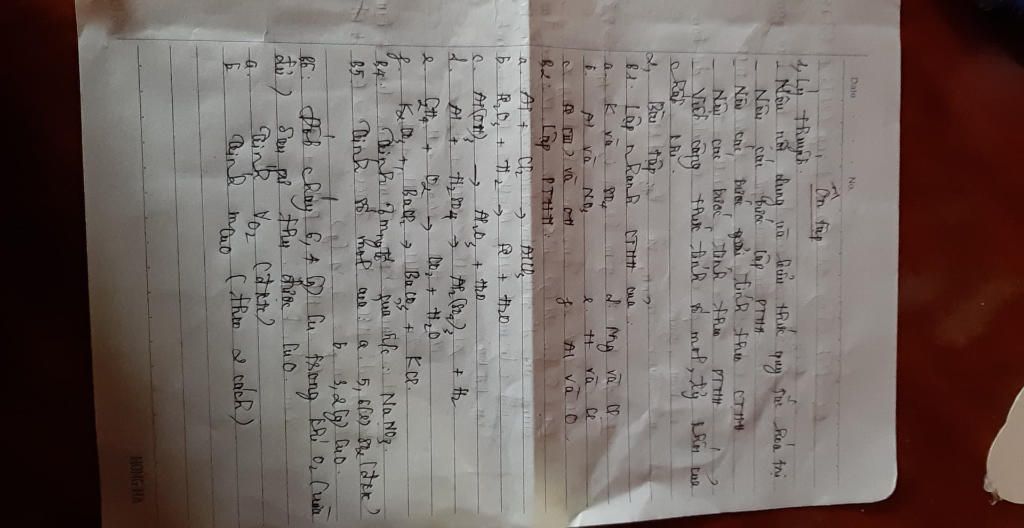 Date No.
Ôn tập
1, Lý thuyết.
- Nêu nội dung và biểu thức quy tắc hóa trị
- Nêu các bước lập PTHH
- Nêu các bước giải tính theo CTHH
- Nêu các bước tính theo PTHH
- Viết công thức tính số mol, tỷ khối của
chất khí.
2, Bài tập
B1. Lập nhanh CTHH của
a. K và SO4 d Mg và Cl
b. Al và NO3 e. H và Cl
c. và OH f. Al và O
B2: Lập PTHH.
a. Al + Cl2 → AlCl3
b. + H2 → + H2O
c. Al(OH)3 → Al2O3 + H2O
d. Al + H2SO4 → Al2(SO4)3 + H2
e. + O2 → CO2 + H2O
f. K2CO3 + BaCl2 → BaCO3 + KCl.
B4. Tính % mỗi ng tố NaNO3
B5) Tính số mol của: a. 5,6(l) SO2 (đktc)
b, 3,2(g) CuO.
B5. Đốt cháy 6,4 (g) Cu trong khí O2 (vừa
đủ) Sau pứ thu được CuO.
a. Tính VO2 (đktc)
b Tính mCuO (theo 2 cách)
HONG HA